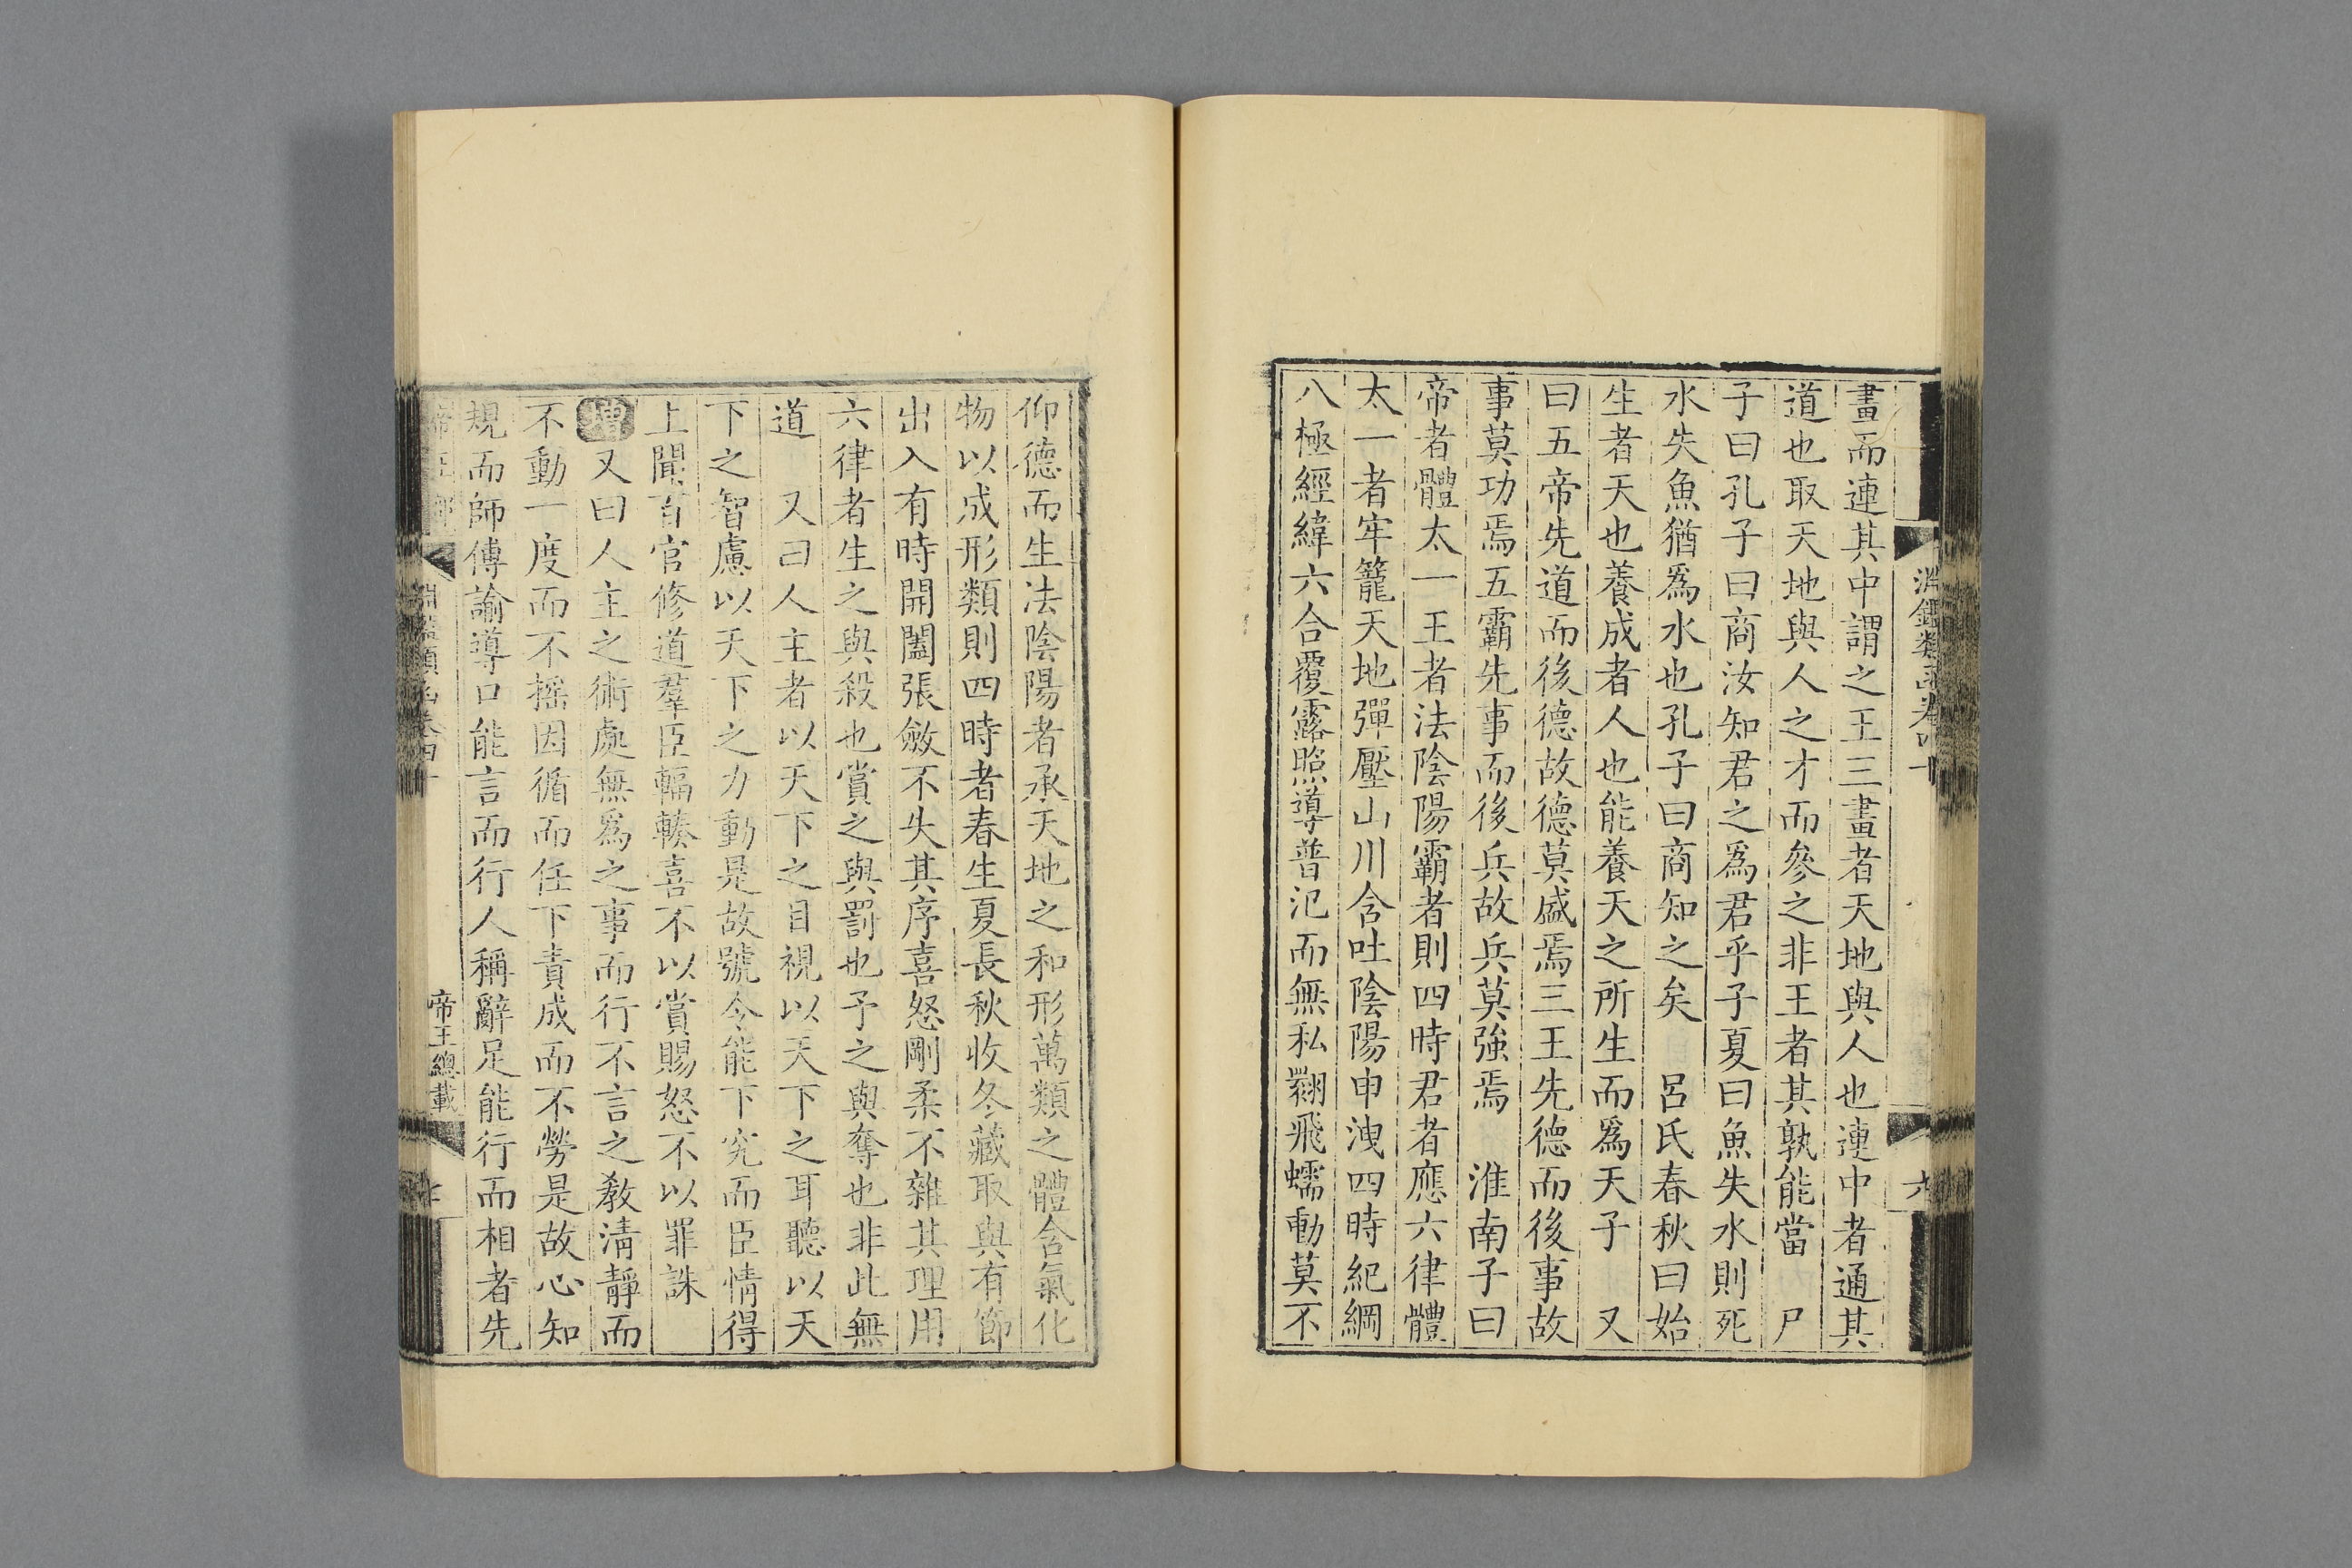 淵鑑類函卷四十
六
畫而連其中謂之王三畫者天地與人也連中者通其
道也取天地與人之才而參之非王者其孰能當 尸
子曰孔子曰商汝知君之爲君乎子夏曰魚失水則死
水失魚猶爲水也孔子曰商知之矣 呂氏春秋曰始
生者天也養成者人也能養天之所生而爲天子 又
曰五帝先道而後德故德莫盛焉三王先德而後事故
事莫功焉五霸先事而後兵故兵莫強焉 淮南子曰
帝者體太一王者法陰陽霸者則四時君者應六律體
太一者牢籠天地彈壓山川含吐陰陽申洩四時紀綱
八極經緯六合覆露照導普氾而無私翾飛蠕動莫不
仰德而生法陰陽者承天地之和形萬類之體含氣化
物以成形類則四時者春生夏長秋收冬藏取與有節
出入有時開闔張斂不失其序喜怒剛柔不雜其理用
六律者生之與殺也賞之與罰也予之與奪也非此無
道 又曰人主者以天下之目視以天下之耳聽以天
下之智慮以天下之力動是故號令能下究而臣情得
上聞百官修道羣臣輻輳喜不以賞賜怒不以罪誅
增又曰人主之術處無爲之事而行不言之教淸靜而
不動一度而不搖因循而任下責成而不勞是故心知
規而師傅諭導口能言而行人稱辭足能行而相者先
淵鑑類函卷四十
帝王總載